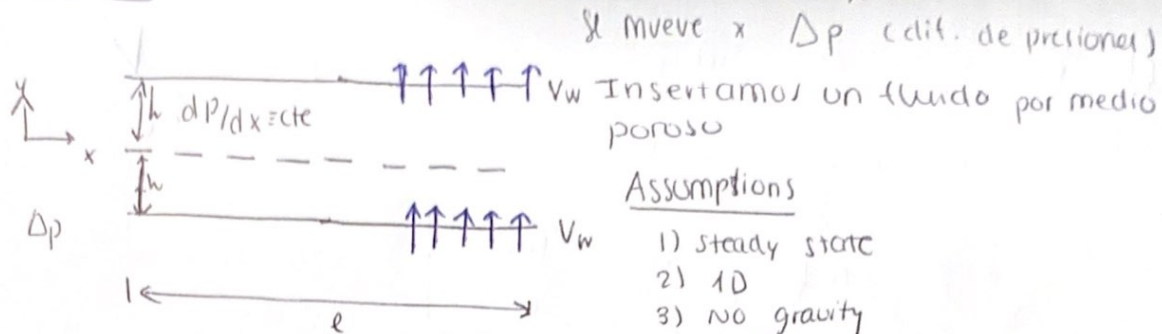 Se mueve x Δp (dif. de presiones)
y
h dP/dx = cte
Vw Insertamos un fluido por medio
poroso
x
h
Assumptions
Δp
Vw
1) steady state
2) 1D
3) No gravity
l